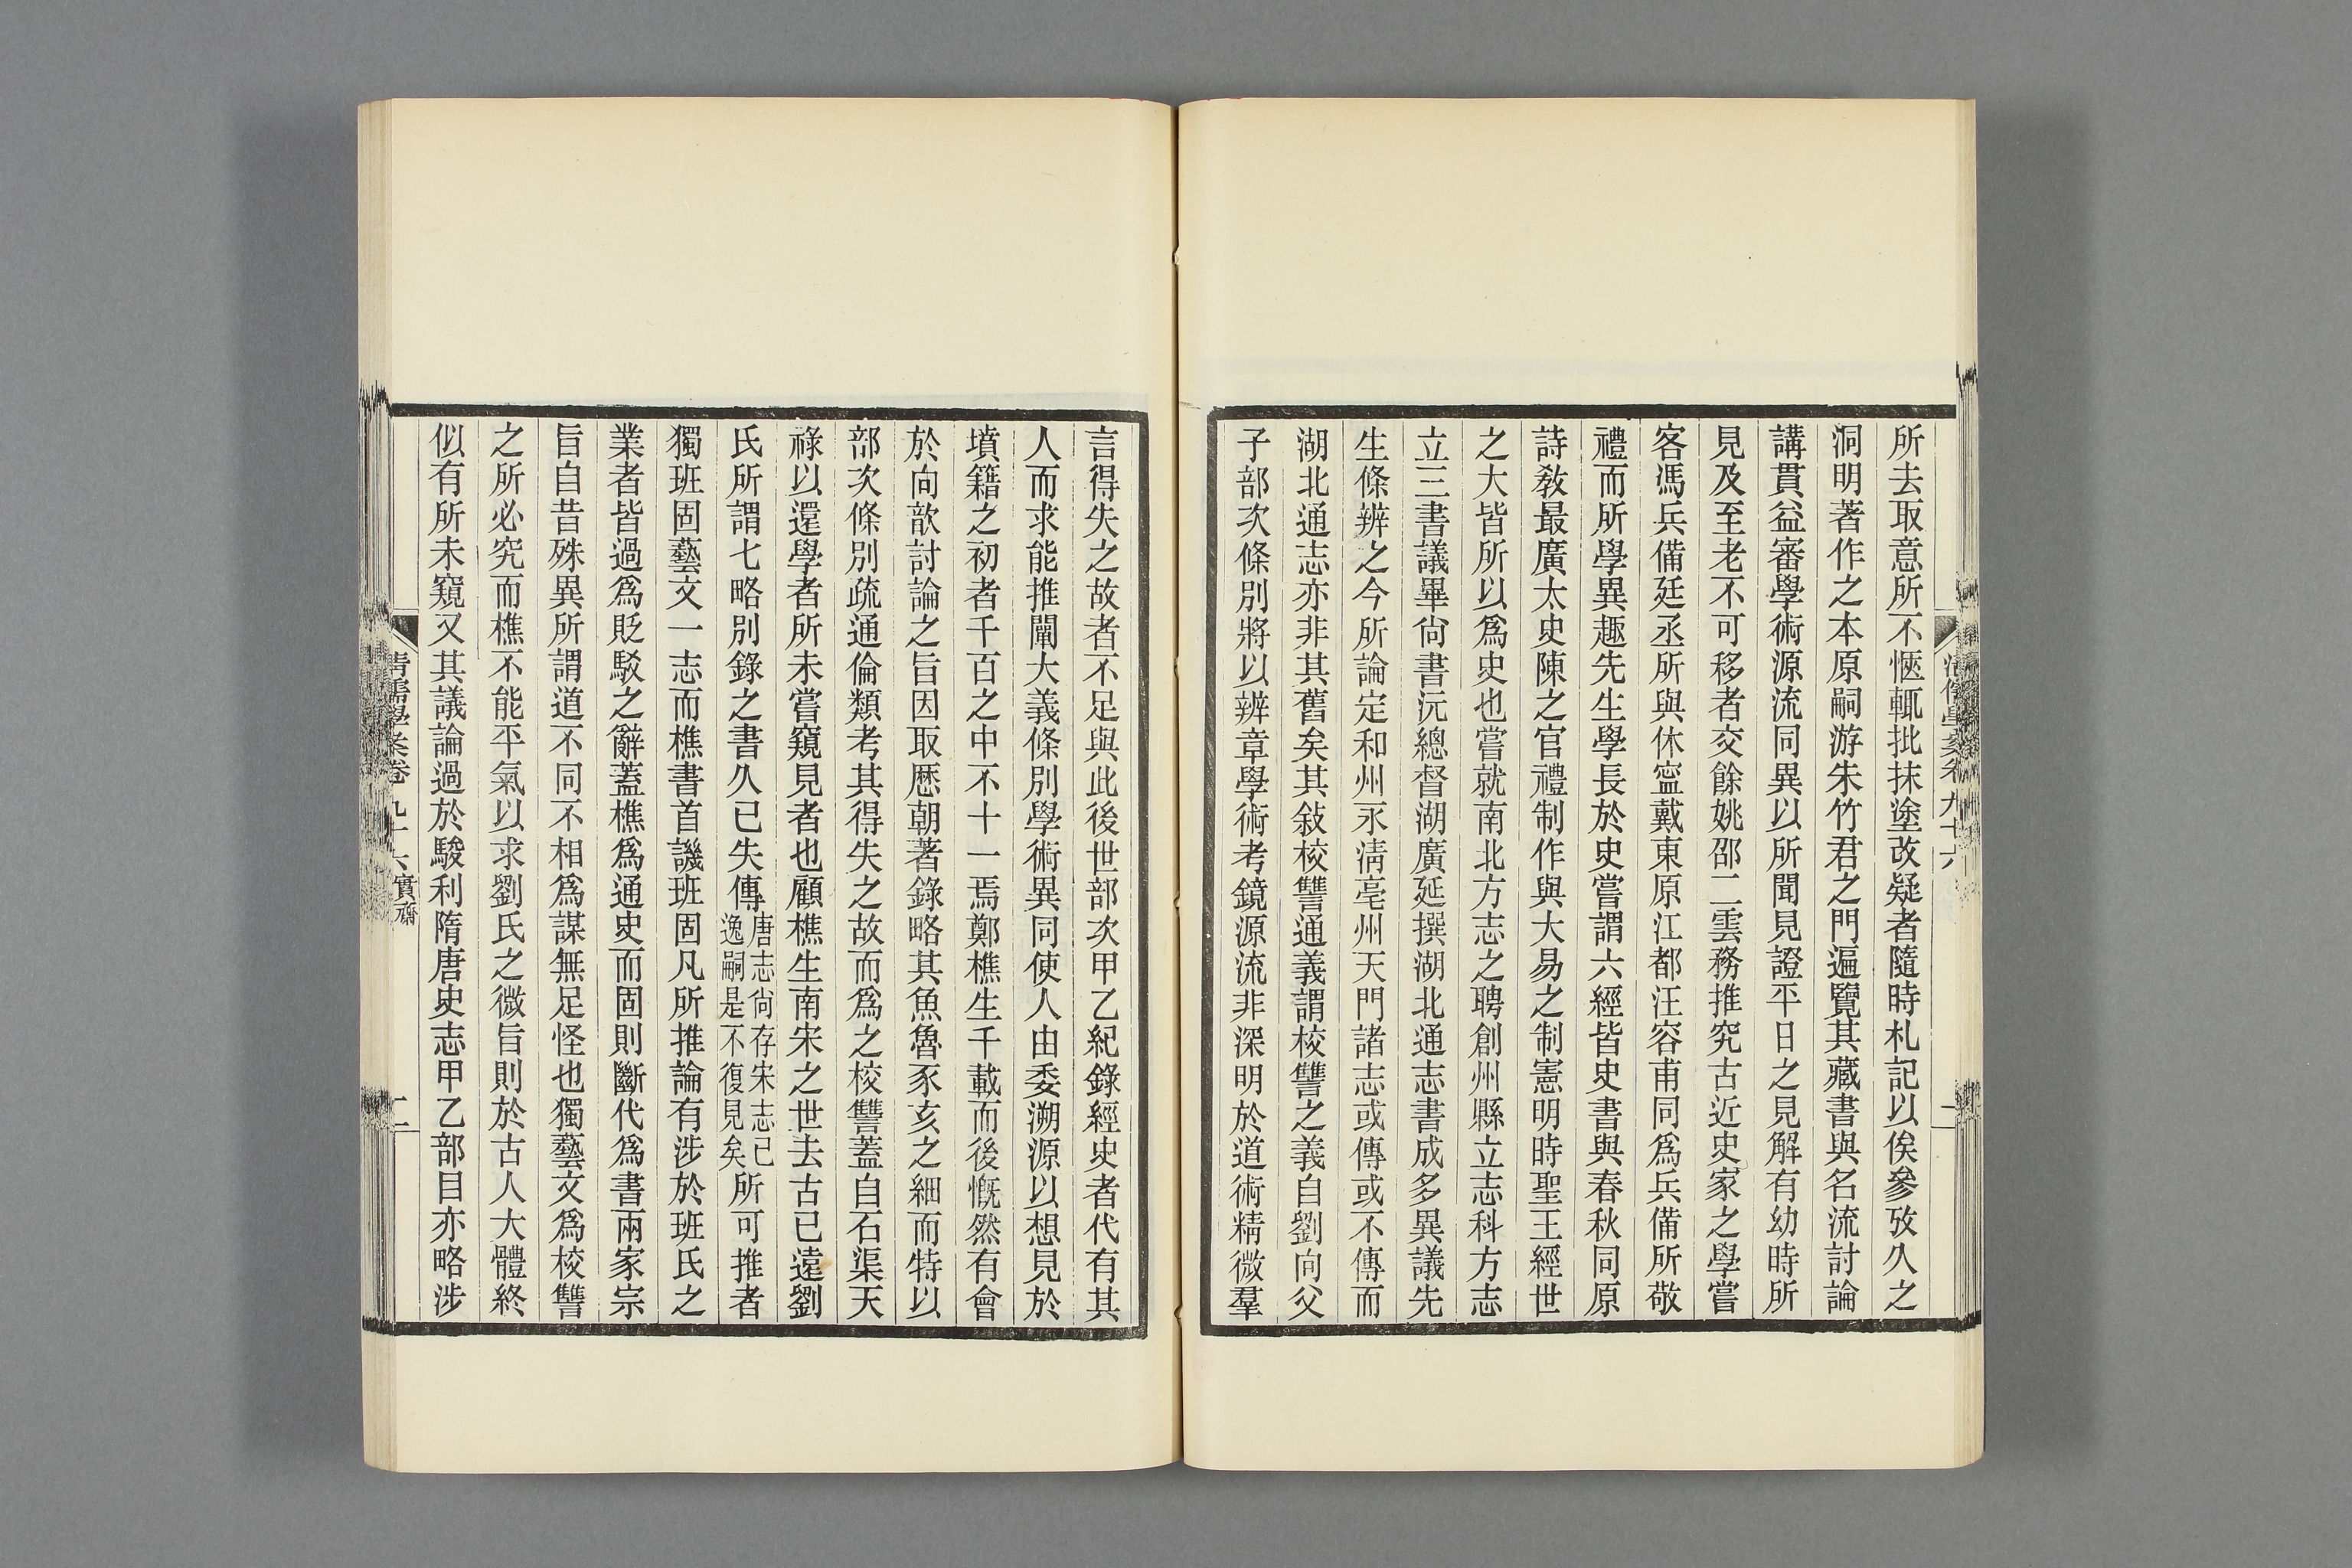 所去取意所不愜輒批抹塗改疑者隨時札記以俟參攷久之
洞明著作之本原嗣游朱竹君之門遍覽其藏書與名流討論
講貫益審學術源流同異以所聞見證平日之見解有幼時所
見及至老不可移者交餘姚邵二雲務推究古近史家之學嘗
客馮兵備廷丞所與休寧戴東原江都汪容甫同爲兵備所敬
禮而所學異趣先生學長於史嘗謂六經皆史書與春秋同原
詩敎最廣太史陳之官禮制作與大易之制憲明時聖王經世
之大皆所以爲史也嘗就南北方志之聘創州縣立志科方志
立三書議畢尙書沅總督湖廣延撰湖北通志書成多異議先
生條辨之今所論定和州永淸亳州天門諸志或傳或不傳而
湖北通志亦非其舊矣其敍校讐通義謂校讐之義自劉向父
子部次條別將以辨章學術考鏡源流非深明於道術精微羣
言得失之故者不足與此後世部次甲乙紀錄經史者代有其
人而求能推闡大義條別學術異同使人由委溯源以想見於
墳籍之初者千百之中不十一焉鄭樵生千載而後慨然有會
於向歆討論之旨因取歷朝著錄略其魚魯豕亥之細而特以
部次條別疏通倫類考其得失之故而爲之校讐蓋自石渠天
祿以還學者所未嘗窺見者也顧樵生南宋之世去古已遠劉
氏所謂七略別錄之書久已失傳唐志尙存宋志已逸嗣是不復見矣所可推者
獨班固藝文一志而樵書首譏班固凡所推論有涉於班氏之
業者皆過爲貶駁之辭蓋樵爲通史而固則斷代爲書兩家宗
旨自昔殊異所謂道不同不相爲謀無足怪也獨藝文爲校讐
之所必究而樵不能平氣以求劉氏之微旨則於古人大體終
似有所未窺又其議論過於駿利隋唐史志甲乙部目亦略涉
淸儒學案卷九十六 實齋 二